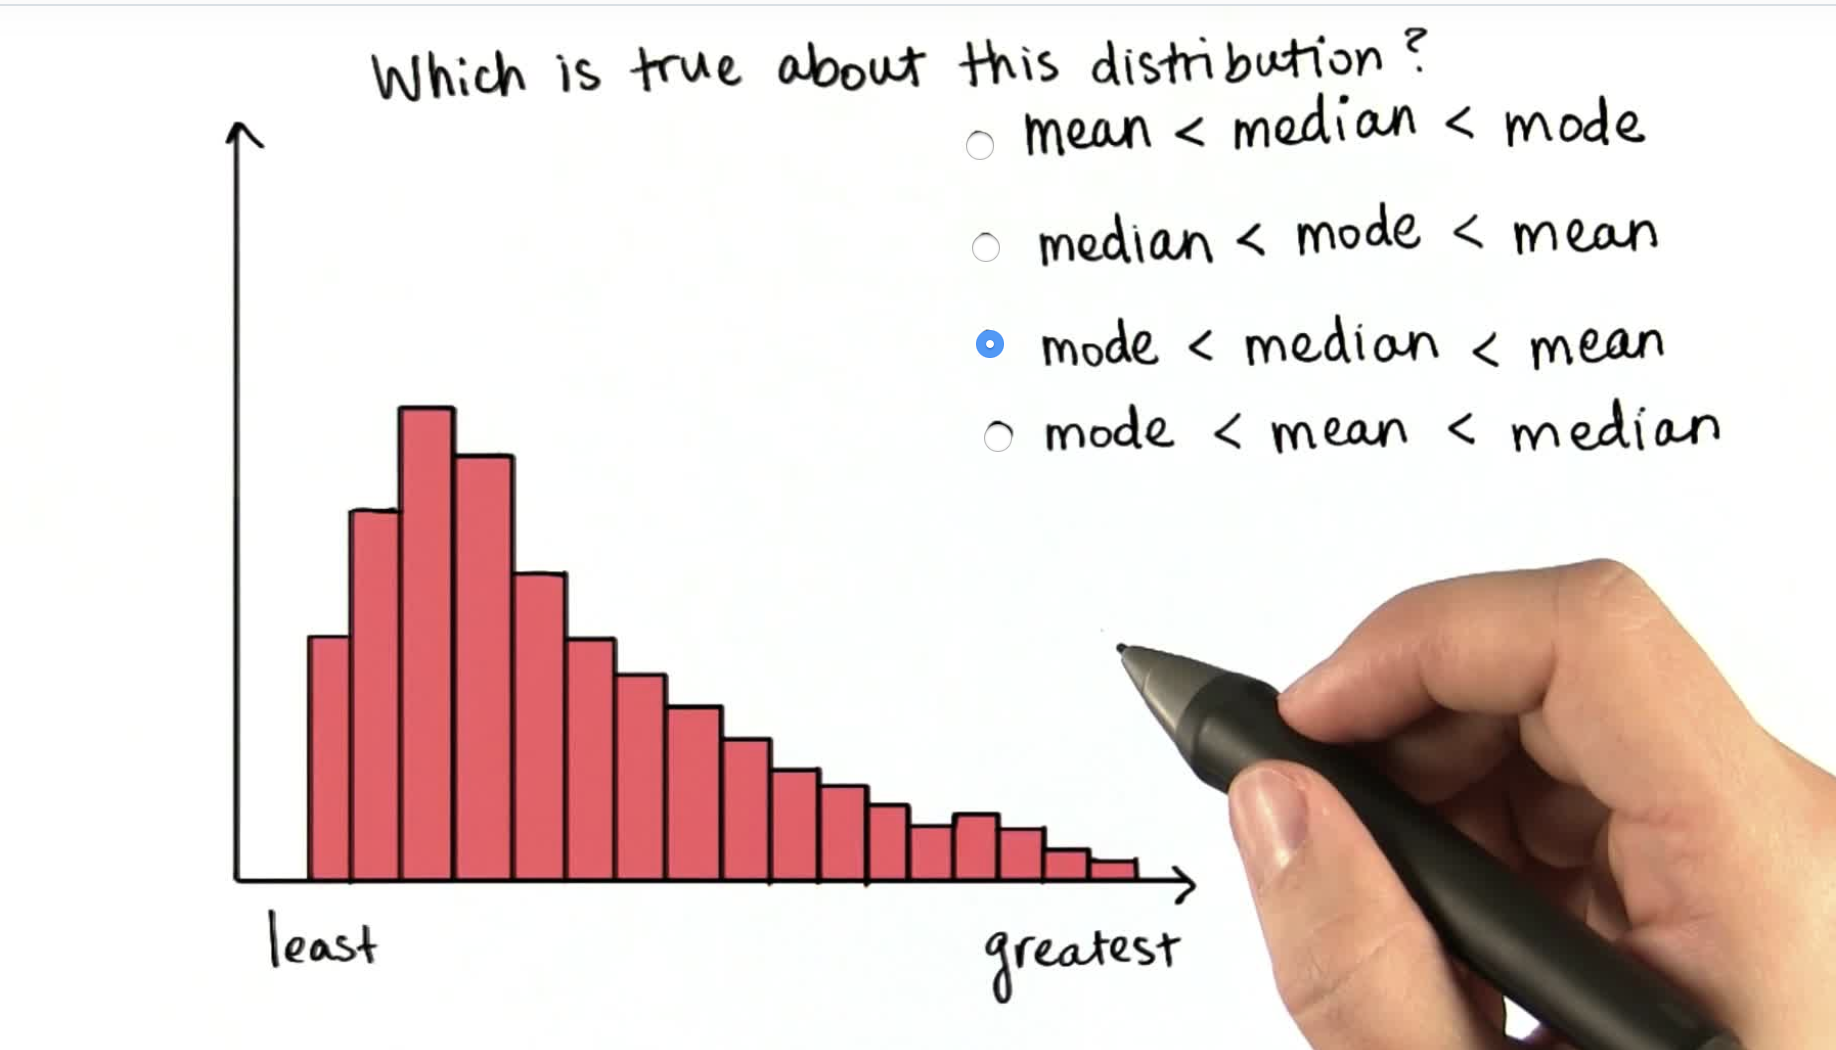 Which is true about this distribution?
mean < median < mode
median < mode < mean
mode < median < mean
mode < mean < median
least
greatest